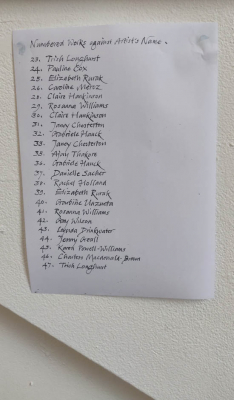 Numbered Works against Artist's Name.
23. Trish Longhurst
24. Pauline Cox
25. Elizabeth Rurak
26. Caroline
28. Claire Hankinson
29. Rosanna Williams
30. Claire Hankinson
31. Janey Chesterton
32. Gabriele Hauck
33. Janey Chesterton
35. Alan
36. Gabriele Hauck
37. Danielle Sacher
38. Rachel Holland
39. Elizabeth Rurak
40.
41. Rosanna Williams
42. Wilson
43. Drinkwater
44. Jenny
45. Karen Powell-Williams
46. Charlene Macdonald-Brown
47. Trish Longhurst